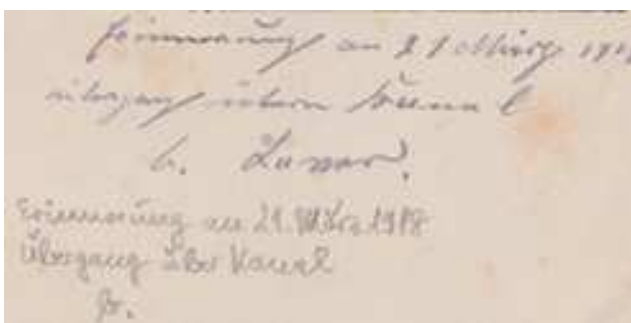 Erinnerung an 21 März 191
übergang übern Kanal
b.
Erinnerung an 21. März 1918
Übergang über Kanal